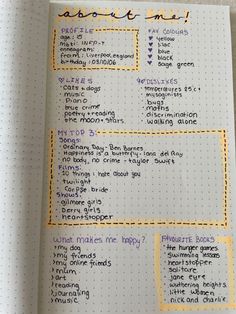 about me!
PROFILE
age: 15
mbti: INFP-T
enneagram:
from: Liverpool, england
birthday: 03/10/06
FAV COLOURS
yellow
lilac
blue
black
sage green
LIKES
cats + dogs
music
Piano
true crime
poetry + reading
the moon + stars
DISLIKES
temperatures 25c+
misogynists
bugs
maths
discrimination
walking alone
MY TOP 3:
Songs:
- Ordinary Day - Ben Barnes
- Happiness is a butterfly - lana del Ray
- no body, no crime - taylor swift
Films:
- 10 things i hate about you
- twilight
- Corpse bride
Shows:
- gilmore girls
- derry girls
- heartstopper
What makes me happy?
my dog
my friends
my online friends
mum
art
reading
journaling
music
FAVOURITE BOOKS
- the hunger games
- Swimming lessons
- heartstopper
- solitaire
- jane eyre
- wuthering heights
- little women
- nick and charlie